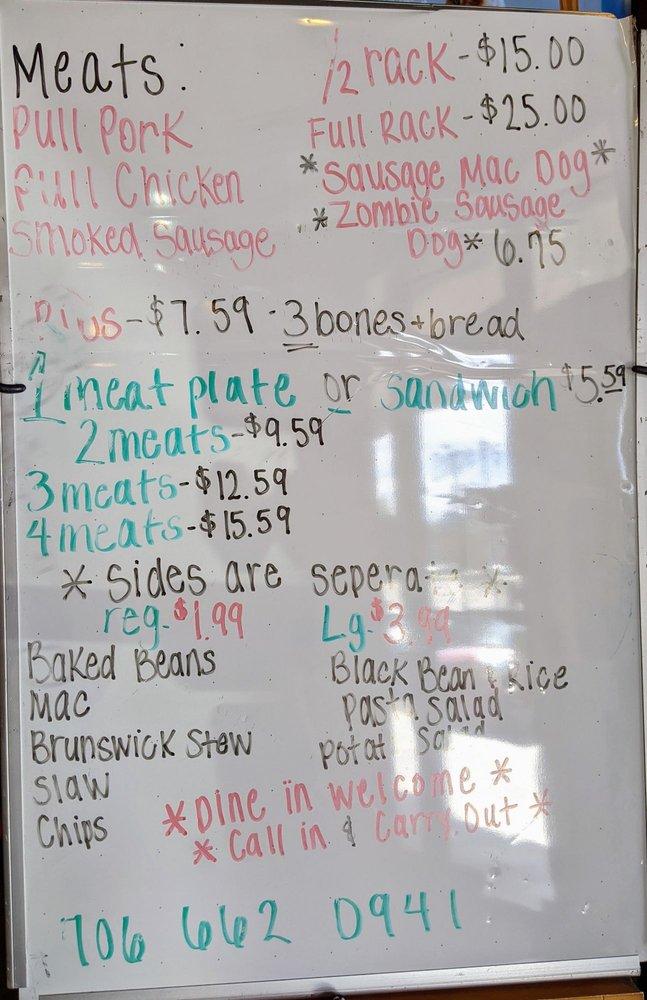 Meats:
Pull Pork
Pull Chicken
Smoked Sausage
1/2 rack - $15.00
Full Rack - $25.00
*Sausage Mac Dog*
*Zombie Sausage
Dog* 6.75
- $7.59 - 3 bones + bread
1 meat plate or sandwich $5.59
2 meats - $9.59
3 meats - $12.59
4 meats - $15.59
* Sides are *
reg. $1.99 Lg. $3.99
Baked Beans
Mac
Brunswick Stew
Slaw
Chips
Black Bean & Rice
Pasta Salad
Salad
*Dine in welcome *
* Call in & Carry Out *
706 662 0941